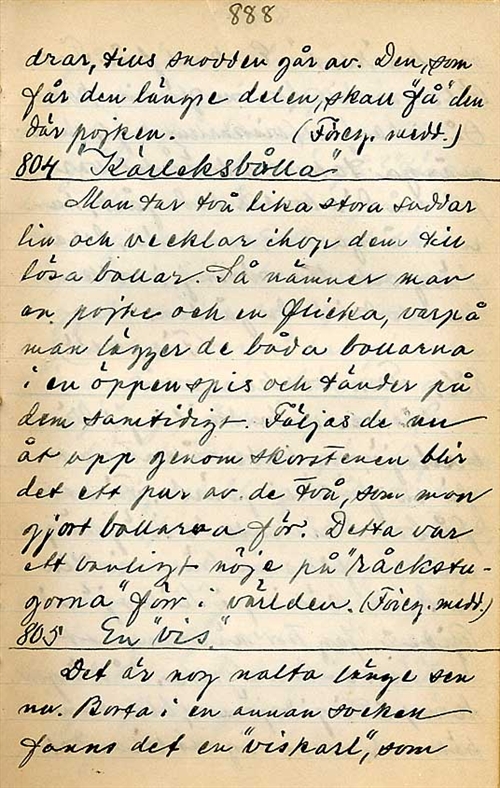 888
drar, tills snodden går av. Den, som
får den längre delen, skall "få" den
där pojken. (Föreg. medd.)
804 "Kärleksbålla"
Man tar två lika stora suddar
lin och vecklar ihop dem till
lösa bollar. Så nämner man
en pojke och en flicka, varpå
man lägger de båda bollarna
i en öppen spis och tänder på
dem samtidigt. Följas de nu
åt upp genom skorstenen blir
det ett par av de två, som man
gjort bollarna för. Detta var
ett vanligt nöje på "råckstu-
gorna" förr i världen. (Föreg. medd.)
805 En "vis."
Det är nog nalta länge sen
nu. Borta i en annan socken
fanns det en "viskarl", som